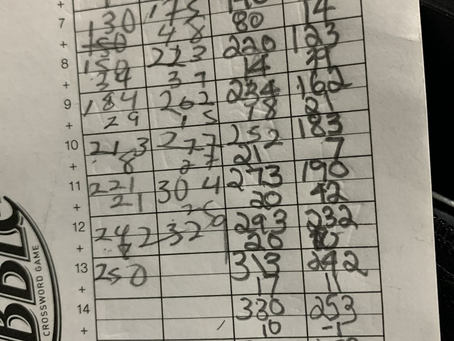 7 130 175 80 14
+ 150 48 220 123
8 150 223 14
+ 34 37 234 162
9 184 262 18 21
+ 29 15 252 183
10 213 277 21 7
+ 8 27 273 190
11 221 304 20 42
+ 21 25 293 232
12 242 329 20 10
+ 8 313 242
13 250 17 11
+ 330 253
14 10 -1
+
CROSSWORD GAME